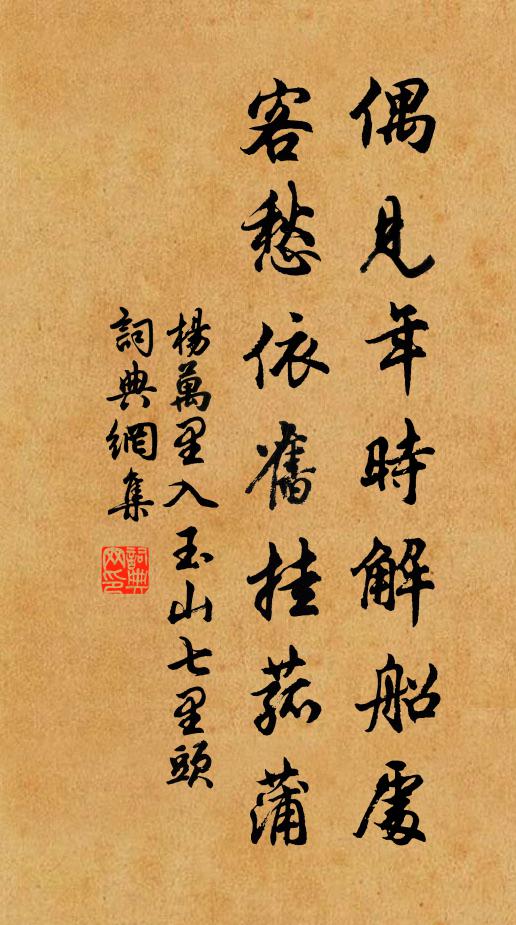 偶見年時解船處
客愁依舊挂菰蒲
楊萬里入玉山七里頭
詞典網集
詞典網印